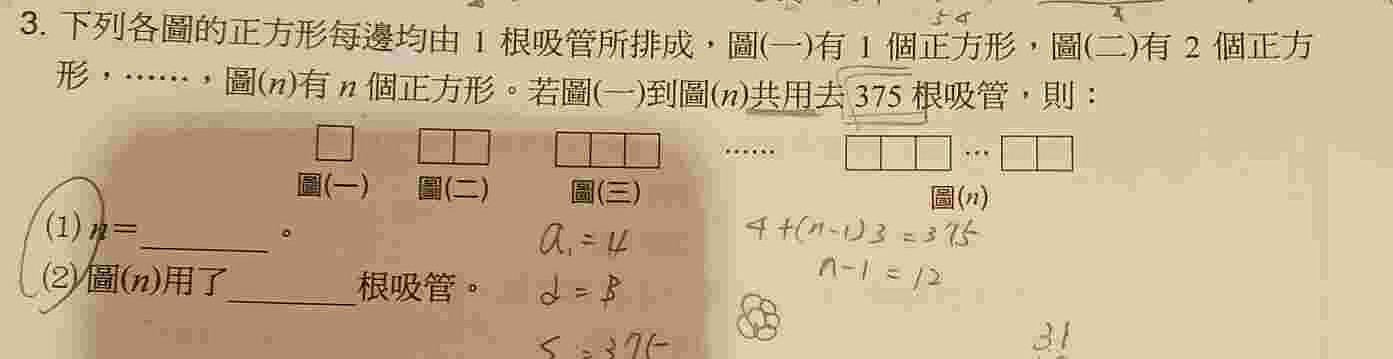 3. 下列各圖的正方形每邊均由 1 根吸管所排成，圖(一)有 1 個正方形，圖(二)有 2 個正方
形，……，圖(n)有 n 個正方形。若圖(一)到圖(n)共用去 375 根吸管，則：
…… …
圖(一) 圖(二) 圖(三) 圖(n)
(1) n=________。
4+(n-1)3=375
a₁=4
n-1=12
(2) 圖(n)用了________根吸管。
d=3
S =375
31